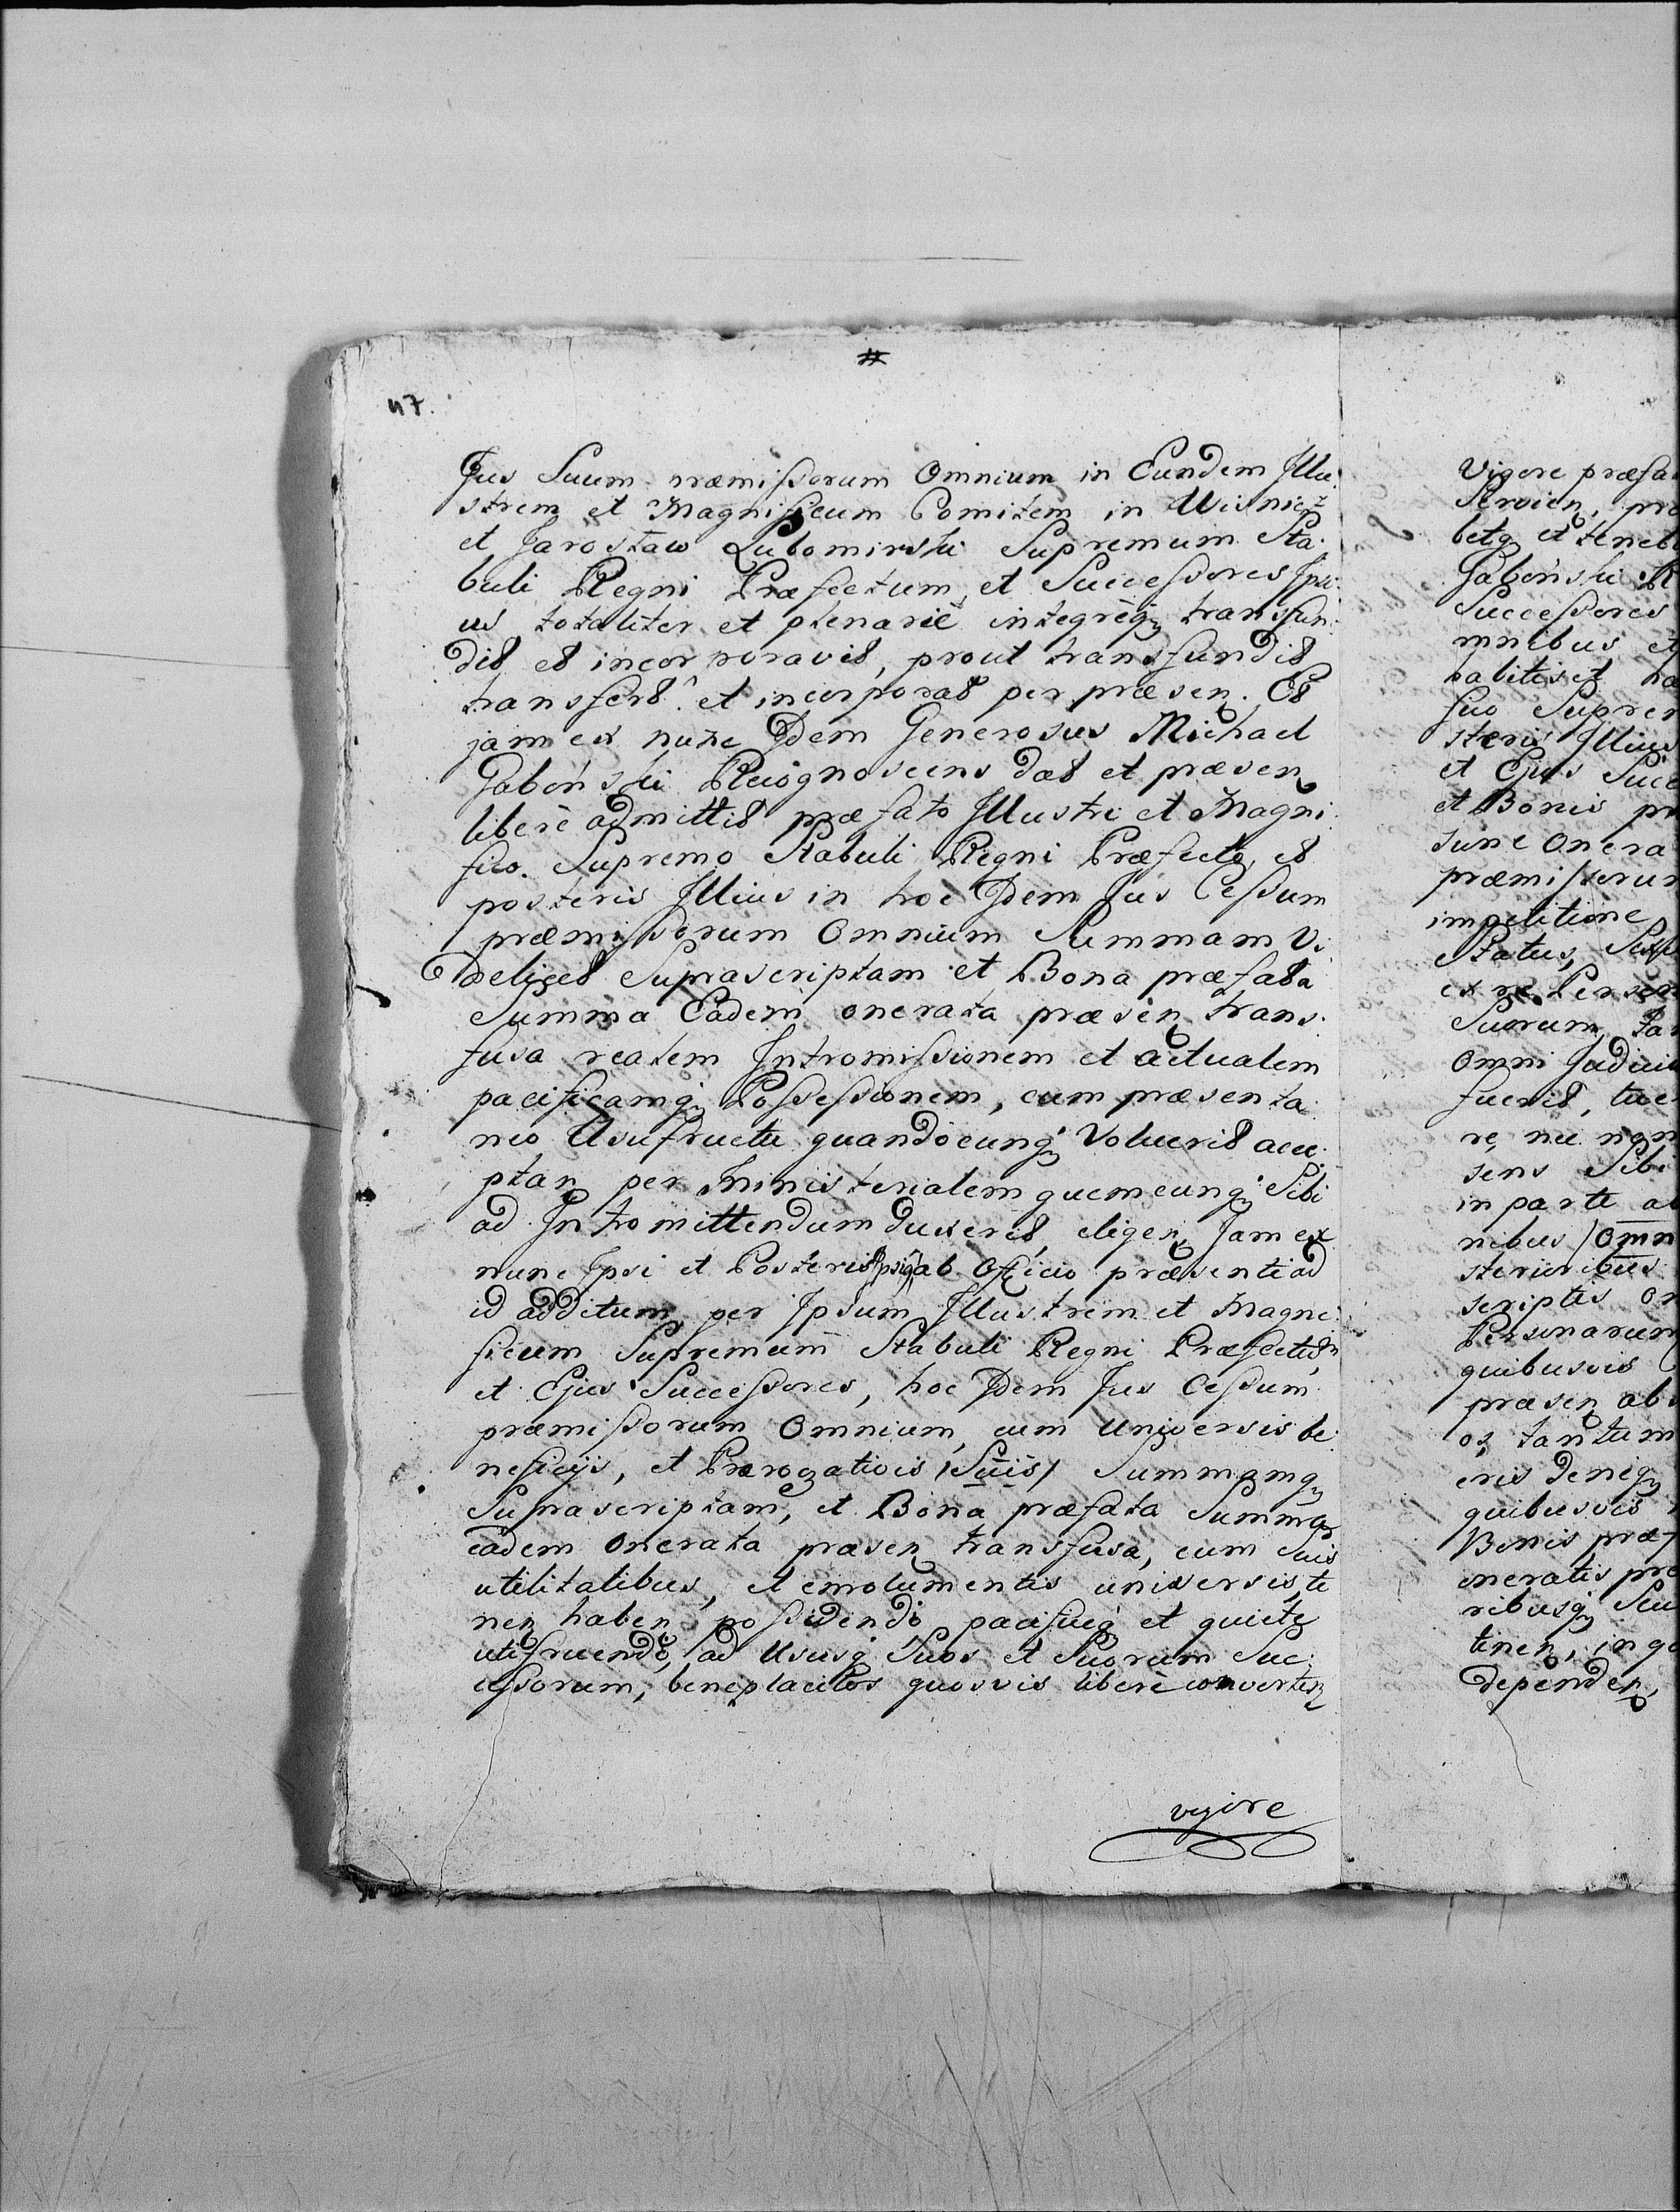 #
47.
Jus Suum præmissorum Omnium in Eundem Illu
strem et Magnificum Comitem in Wisnicz
et Jarosław Lubomirski Supremum Sta
buli Regni Præfectum, et Successores Ipsi
us totaliter et plenariè integrèq3 transfun
dit et incorporavit, prout transfundit
transfert et incorporat per præsen. Et
jam ex nunc Idem Generosus Michael
Gaboński Recognoscens dat et præsen
liberè admittit præfato Illustri et Magni
fico Supremo Stabuli Regni Præfecto, et
posteris Illius in hoc Idem Jus Cessum
præmissorum Omnium Summam Vi
delicet Suprascriptam et Bona præfata
Summa Eadem onerata præsen trans
fusa realem Intromissionem et actualem
pacificamq3 Possessionem, cum præsenta
neo Usufructu quandocunq3 Voluerit acce
ptan per Ministerialem quemcunq3 Sibi
ad Intromittendum duxerit eligen, Jam ex
nunc Ipsi et Posteris Ipsiq ab Officio præsenti ad
id additum, per Ipsum Illustrem et Magni
ficum Supremum Stabuli Regni Præfectum
et Ejus Successores, hoc Idem Jus Cessum
præmissorum Omnium, cum Universis be
neficijs, et Prærogativis /Suis/ Summamq3
Suprascriptam, et Bona præfata Summa
eadem Onerata præsen transfusa, cum Suis
utilitatibus, et emolumentis universis, te
nen haben, possidendo pacificè et quietè
utifruendo, ad Ususq3 Suos et Suorum Suc
cessorum, beneplacitos quosvis liberè converten
vigore
Vigore præfa
Servien, pre
betq3 et teneb
Gaboński R
Successores
mnibus et
habitis et ha
suo Suprem
steris Illius
et Ejus Succ
et Bonis pr
Onera
præmissorum
impetitione
Status, Sex
ex re Person
Suorum, ta
Omni Judicio
fuerit, tue
re, nec non
sens Sibi
in parte a
nibus /Omn
sterioribus
scriptis on
Personarum
quibusvis
præsen ab
os, tantum
eris deneq3
quibusvis
Bonis præf
oneratis pre
ribusq3 Seu
tinen, in q
dependen,